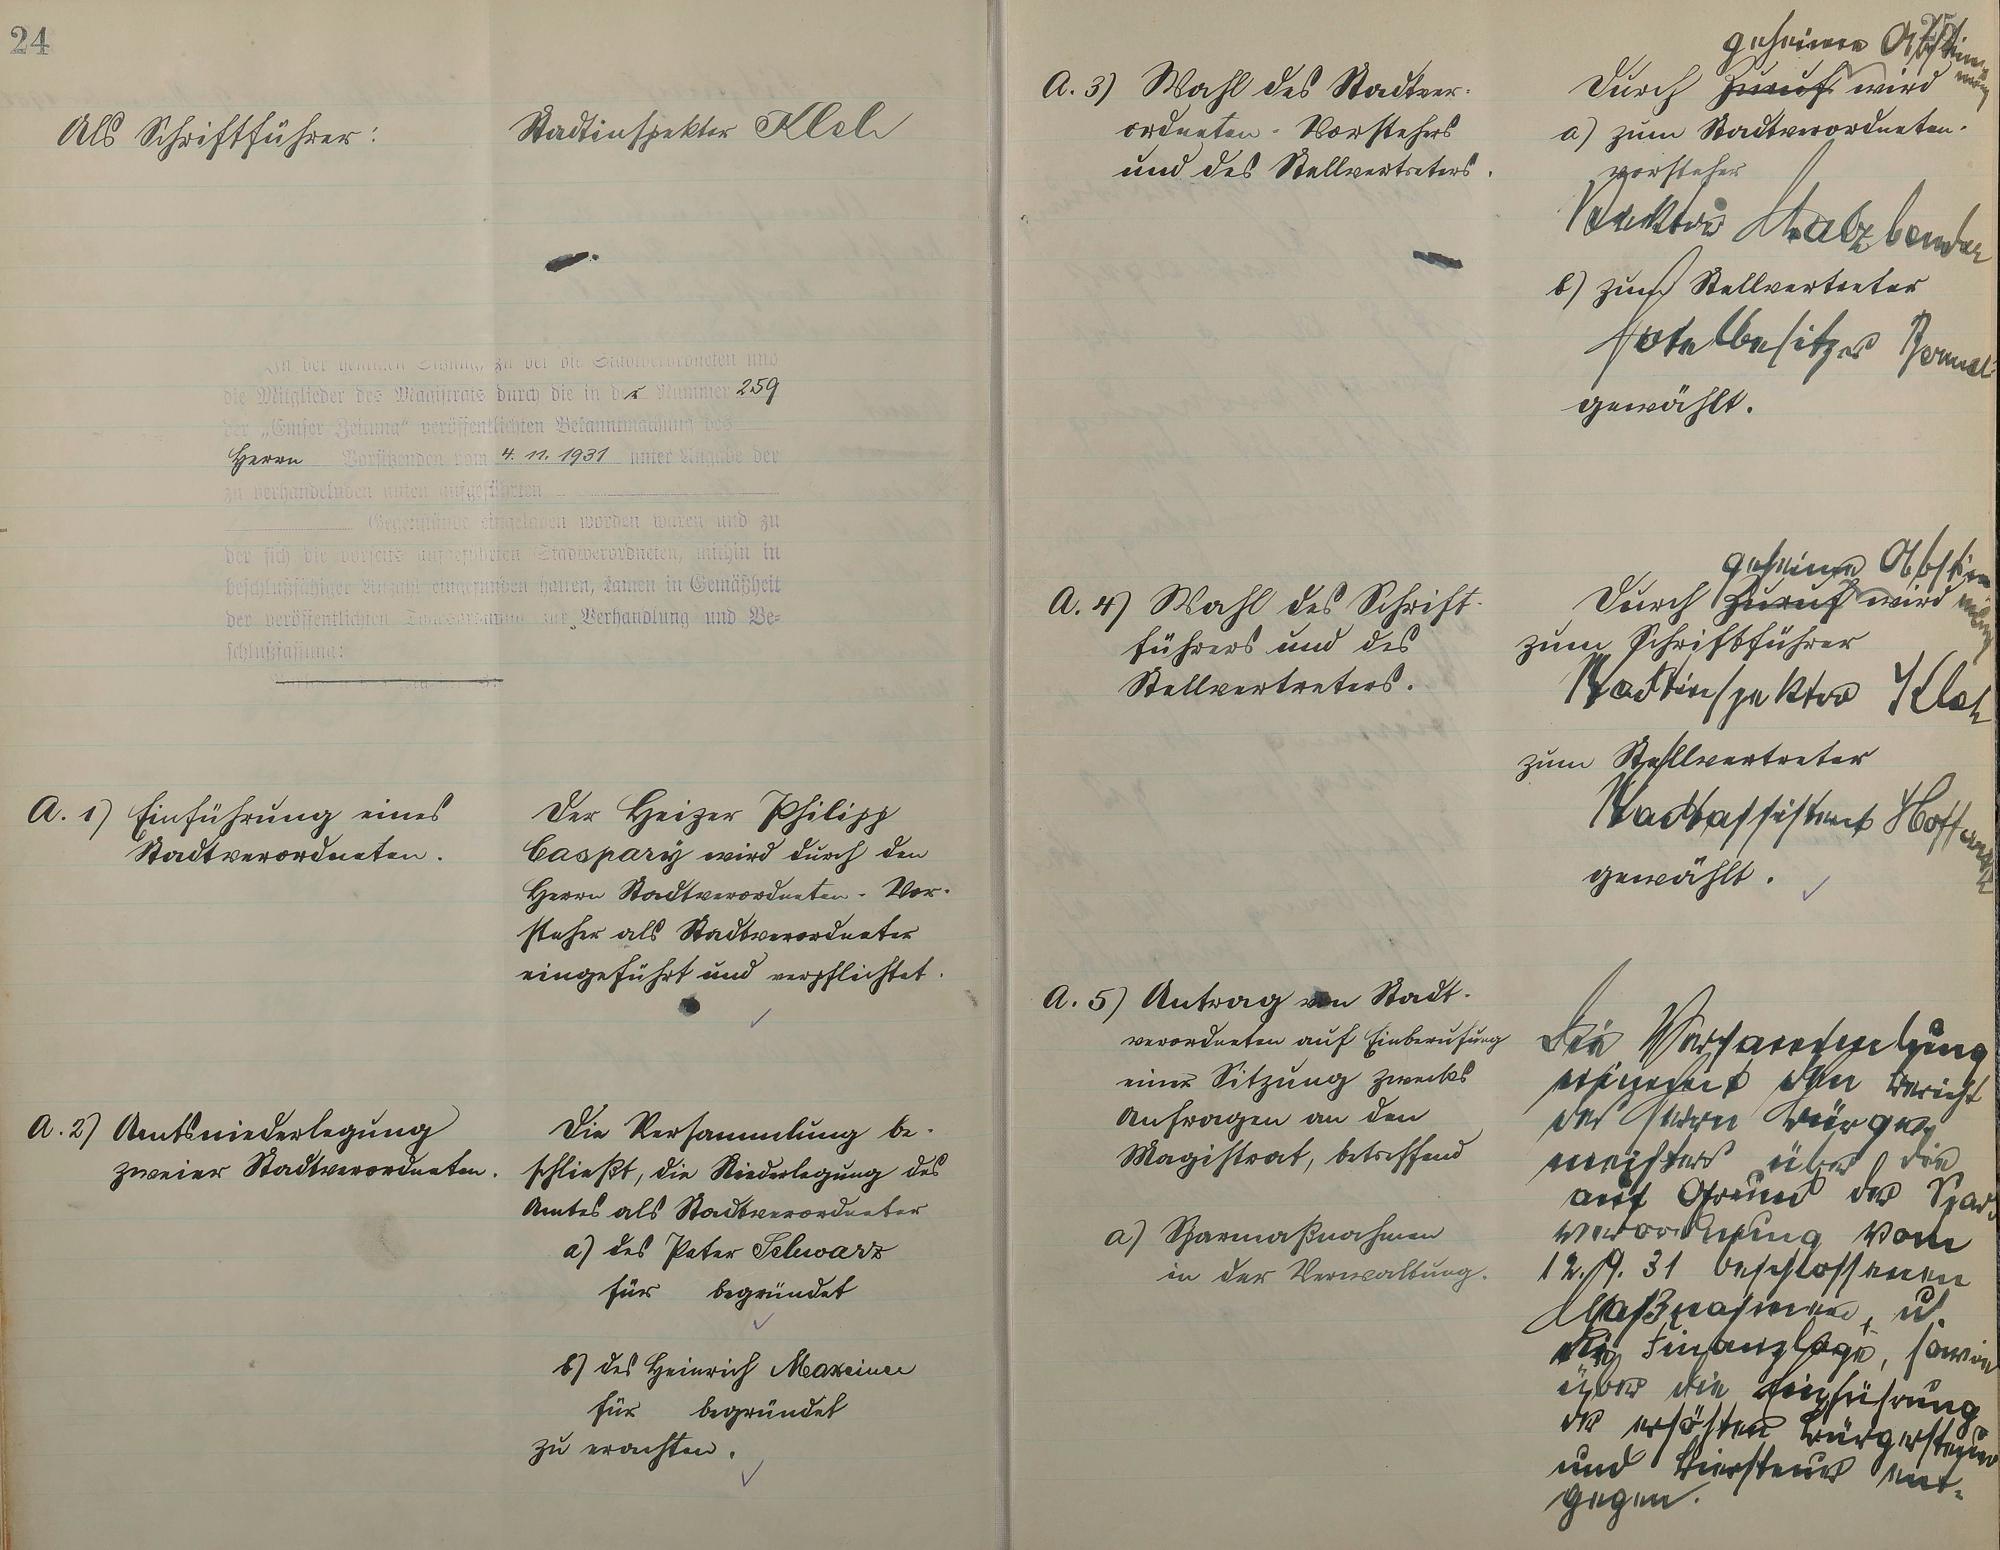 24
Als Schriftführer:
Stadtinspekter Kleh
In der heutigen Sitzung, zu der die Stadtverordneten und
die Mitglieder des Magistrats durch die in der Nummer 259
der „Emser Zeitung" veröffentlichten Bekanntmachung des
Herrn Vorsitzenden vom 4. 11. 1931 unter Angabe der
zu verhandelnden unten aufgeführten
Gegenstände eingeladen worden waren und zu
der sich die vorseits aufgeführten Stadtverordneten, mithin in
beschlußfähiger Anzahl eingefunden hatten, kamen in Gemäßheit
der veröffentlichten Tagesordnung zur Verhandlung und Be-
schlußfassung:
A. 1) Einführung eines
Stadtverordneten.
Der Heizer Philipp
Caspary wird durch den
Herrn Stadtverordneten-Vor-
steher als Stadtverordneter
eingeführt und verpflichtet.
A. 2) Amtsniederlegung
zweier Stadtverordneten.
Die Versammlung be-
schließt, die Niederlegung des
Amtes als Stadtverordneter
a) des Peter Schwarz
für begründet
b) des Heinrich Maxeiner
für begründet
zu erachten.
A. 3) Wahl des Stadtver-
ordneten-Vorstehers
und des Stellvertreters.
geheime Abstim-
mung
Durch Zuruf wird
a) zum Stadtverordneten-
vorsteher
Rektor
b) zum Stellvertreter
Hotelbesitzer
gewählt.
A. 4) Wahl des Schrift-
führers und des
Stellvertreters.
geheime Abstim-
mung
Durch Zuruf wird
zum Schriftführer
Stadtinspektor Kleh
zum Stellvertreter
Stadtassistent Hoffmann
gewählt.
A. 5) Antrag von Stadt-
verordneten auf Einberufung
einer Sitzung zwecks
Anfragen an den
Magistrat, betreffend
a) Sparmaßnahmen
in der Verwaltung.
Die Versammlung
nimmt den Bericht
des Herrn Bürger-
meisters über die
auf Grund der Spar-
verordnung vom
12. 9. 31 beschlossenen
Maßnahmen, u.
die Finanzlage, sowie
über die Einführung
der erhöhten Bürgersteuer
und Biersteuer ent-
gegen.